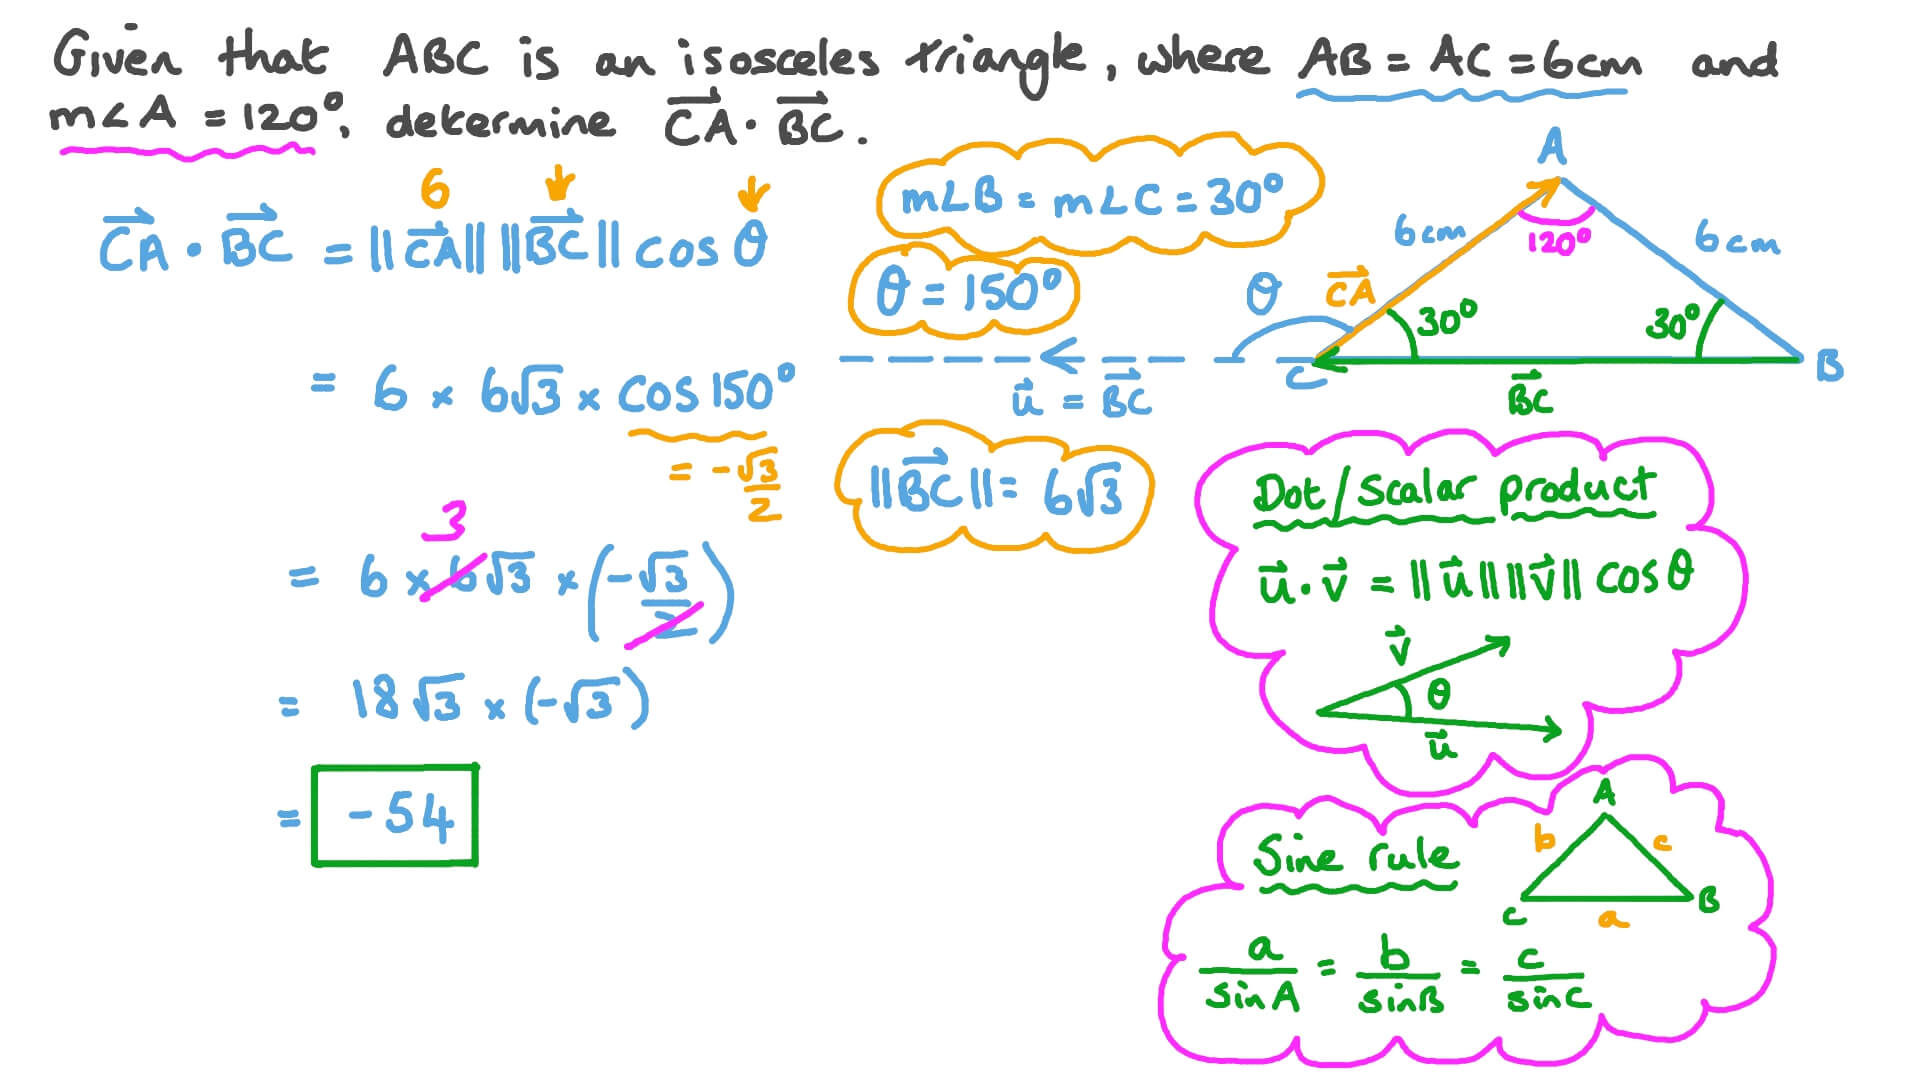 Given that ABC is an isosceles triangle, where AB = AC = 6cm and
m∠A = 120°, determine \overrightarrow{CA} · \overrightarrow{BC}.
6
\overrightarrow{CA} · \overrightarrow{BC} = ||\overrightarrow{CA}|| ||\overrightarrow{BC}|| cos θ
= 6 × 6√3 × cos 150°
= -√3/2
3
= 6 × 6√3 × (-√3/2)
= 18√3 × (-√3)
= -54
m∠B = m∠C = 30°
θ = 150°
\vec{u} = \overrightarrow{BC}
||\overrightarrow{BC}|| = 6√3
A
6cm
120°
6cm
θ
\overrightarrow{CA}
30°
30°
C
B
\overrightarrow{BC}
Dot/scalar product
\vec{u} · \vec{v} = ||\vec{u}|| ||\vec{v}|| cos θ
\vec{v}
θ
\vec{u}
Sine rule
A
b
c
C
B
a
a/sinA = b/sinB = c/sinC